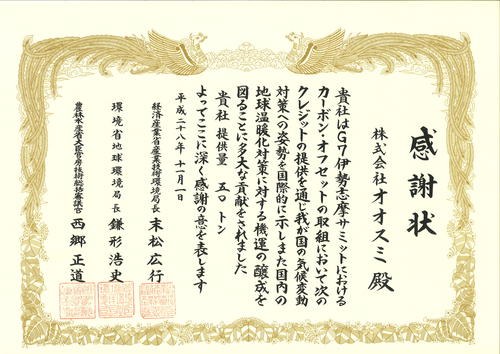 感謝状
株式会社オオスミ 殿
貴社はG7伊勢志摩サミットにおける
カーボン・オフセットの取組において次の
クレジットの提供を通じ我が国の気候変動
対策への姿勢を国際的に示しまた国内の
地球温暖化対策に対する機運の醸成を
図ることに多大な貢献をされました
貴社 提供量 五〇トン
よってここに深く感謝の意を表します
平成二十八年 十一月一日
経済産業省産業技術環境局長 末松広行
環境省地球環境局長 鎌形浩史
農林水産省大臣官房技術総括審議官 西郷正道